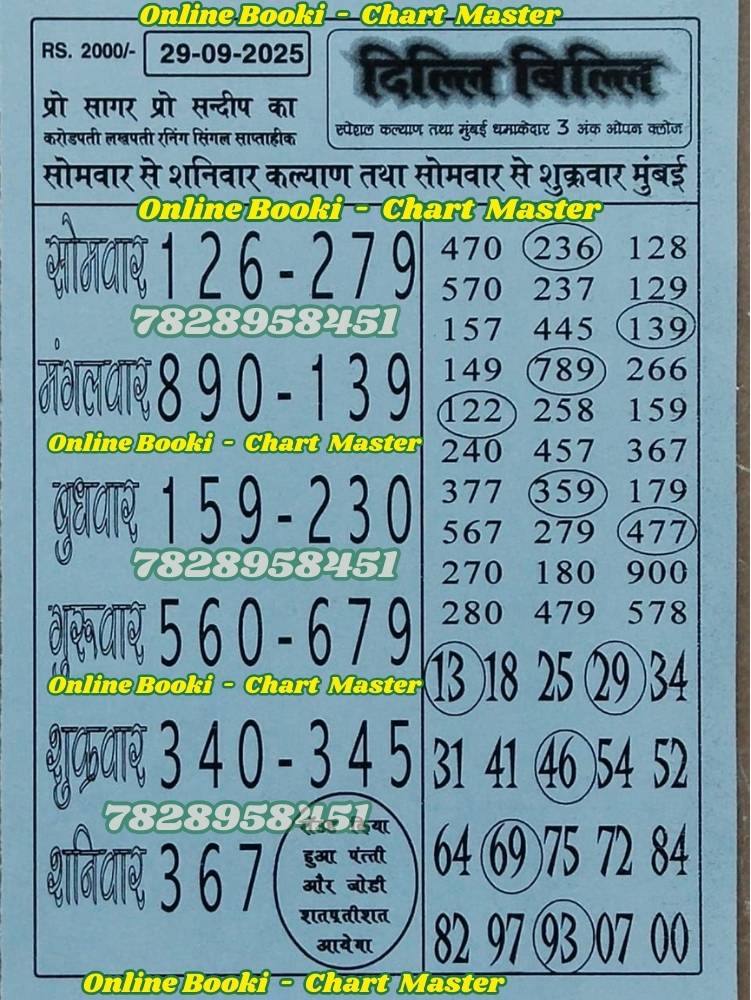 Online Booki - Chart Master
RS. 2000/- 29-09-2025
दिल्लि बिल्लि
प्रो सागर प्रो सन्दीप का
करोडपती लखपती रनिंग सिंगल साप्ताहीक
स्पेशल कल्याण तथा मुंबई धमाकेदार 3 अंक ओपन क्लोज
सोमवार से शनिवार कल्याण तथा सोमवार से शुक्रवार मुंबई
Online Booki - Chart Master
सोमवार 126-279
7828958451
मंगलवार 890-139
Online Booki - Chart Master
बुधवार 159-230
7828958451
गुरूवार 560-679
Online Booki - Chart Master
शुक्रवार 340-345
7828958451
शनिवार 367
हुआ पंत्ती
और जोडी
शतप्रतीशत
आयेगा
470 236 128
570 237 129
157 445 139
149 789 266
122 258 159
240 457 367
377 359 179
567 279 477
270 180 900
280 479 578
13 18 25 29 34
31 41 46 54 52
64 69 75 72 84
82 97 93 07 00
Online Booki - Chart Master